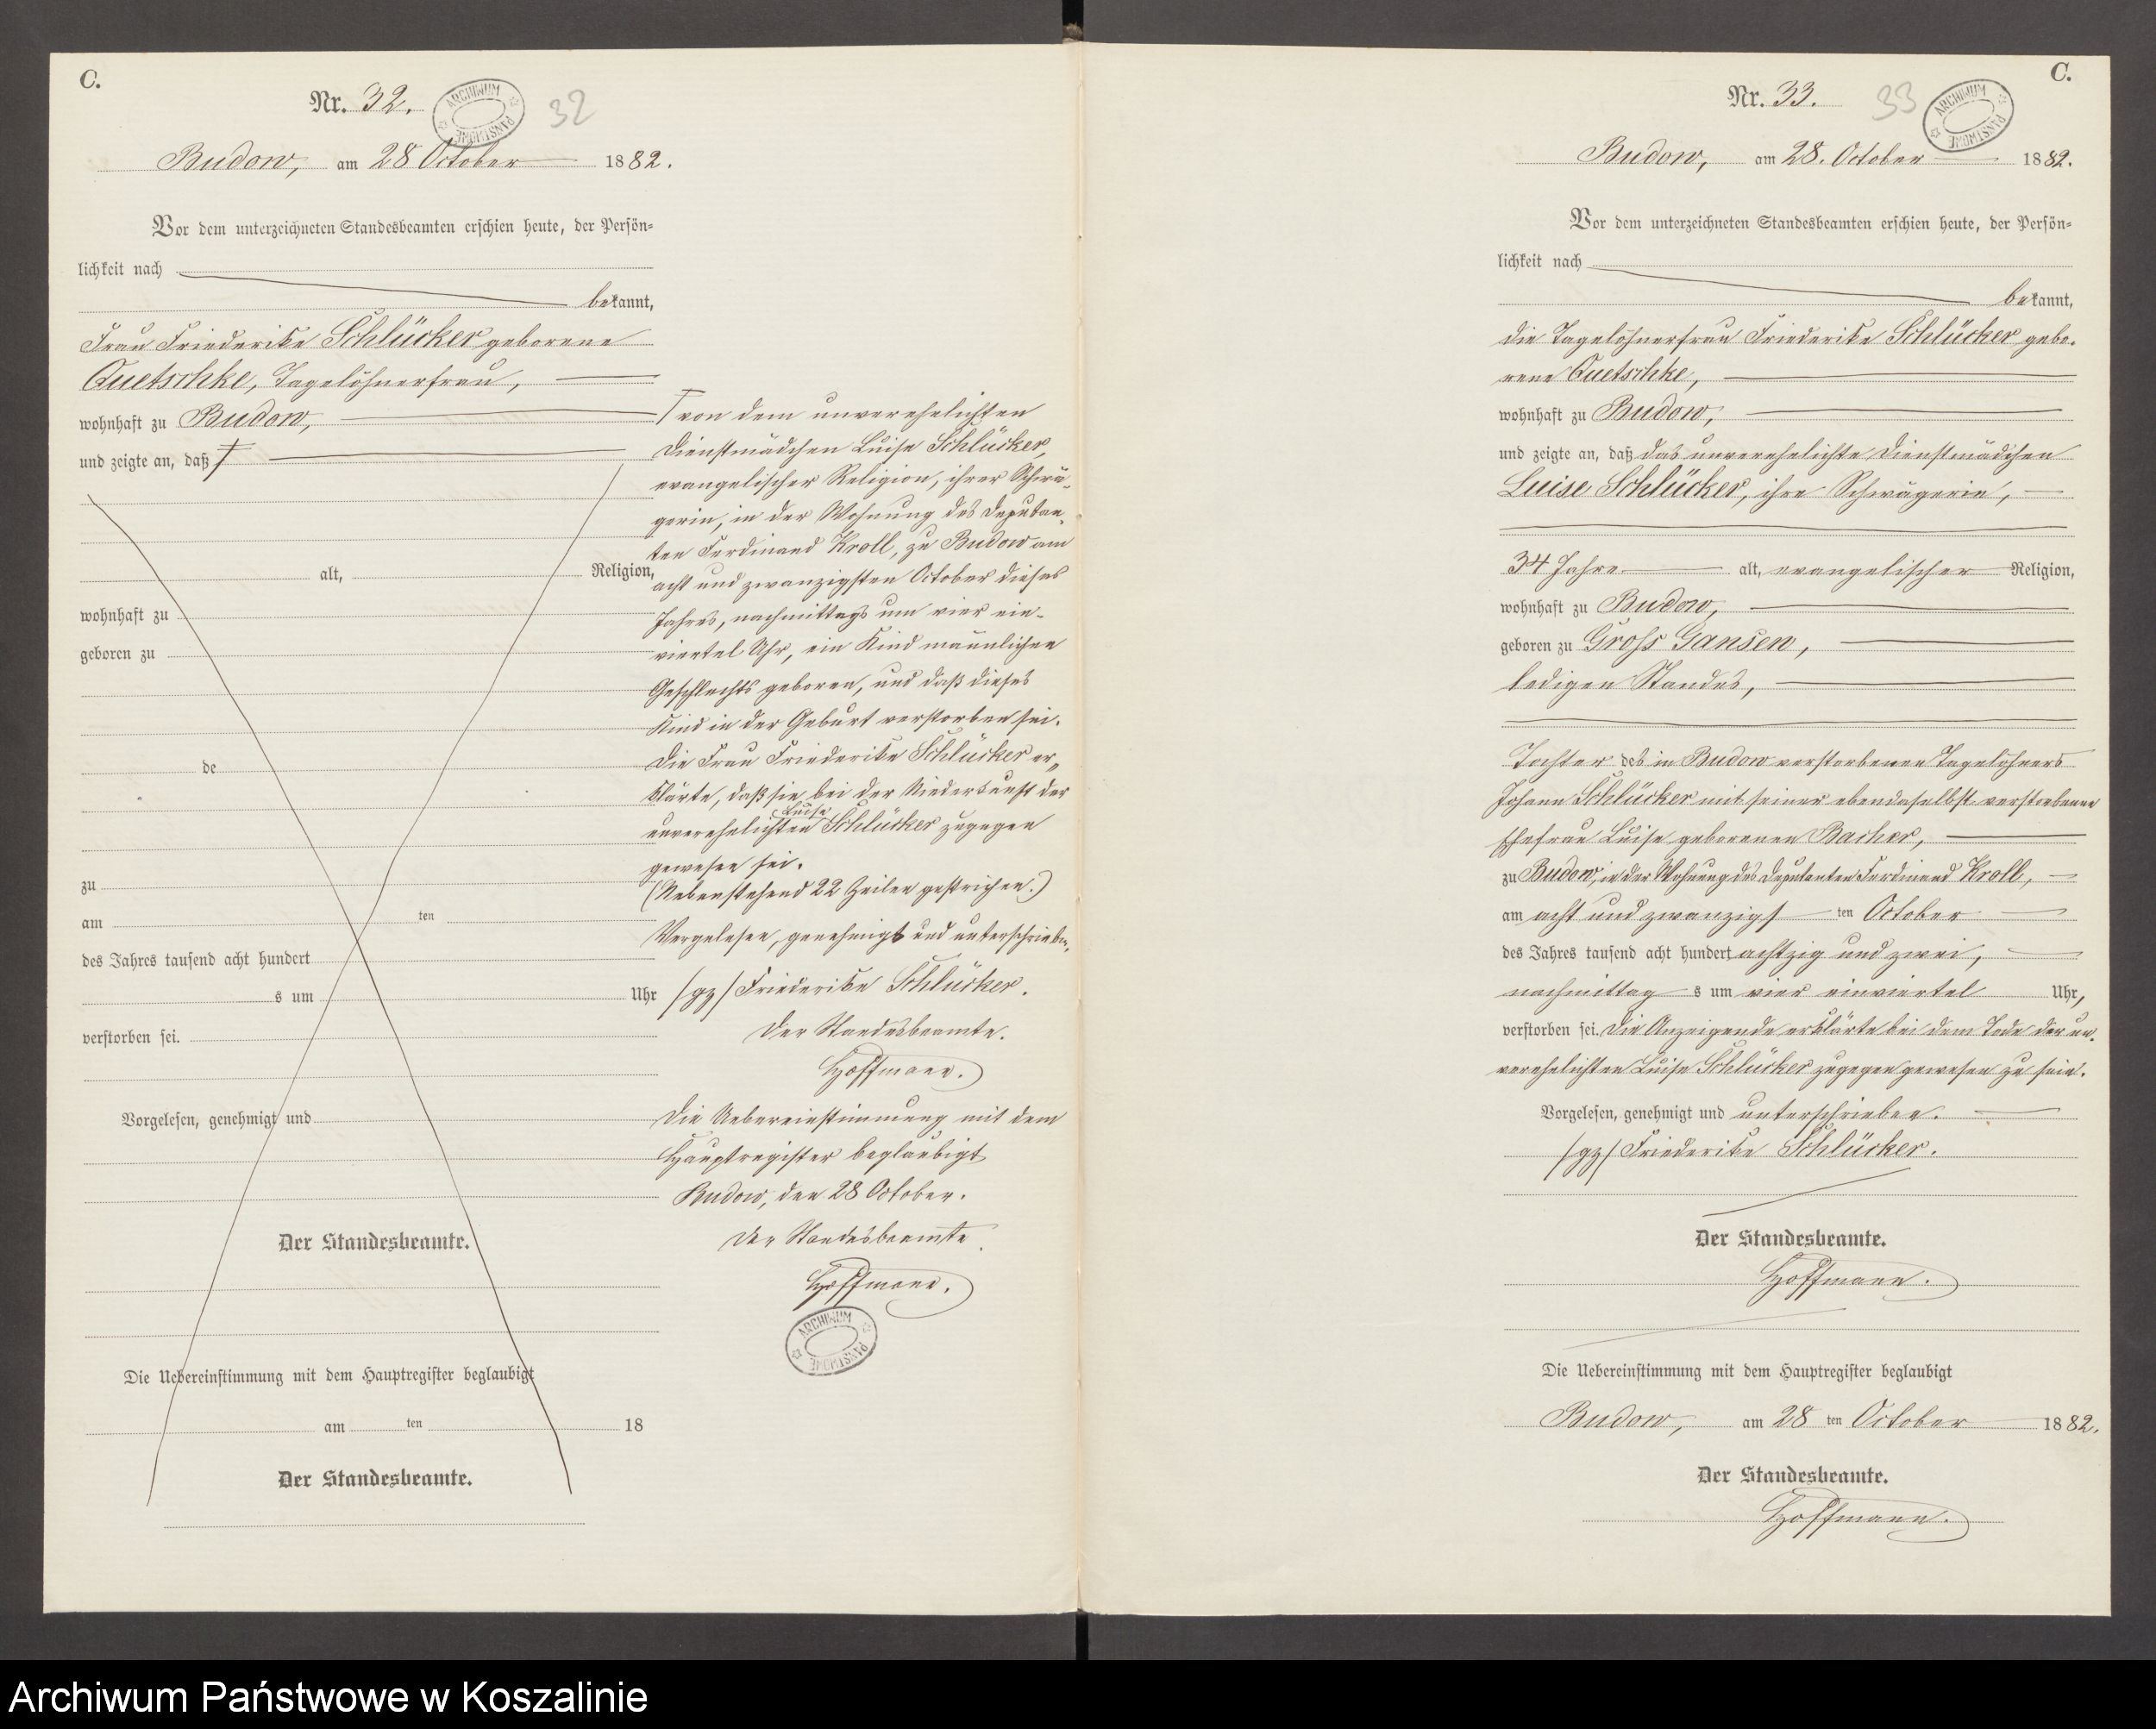 C.
Nr. 32.
ARCHIWUM PAŃSTWOWE
32
Budow, am 28 October 1882.
Vor dem unterzeichneten Standesbeamten erschien heute, der Persön-
lichkeit nach
bekannt,
Frau Friederike Schlücker geborene
Quetschke, Tagelöhnerfrau,
wohnhaft zu Budow,
und zeigte an, daß
alt, Religion,
wohnhaft zu
geboren zu
de
zu
am ten
des Jahres tausend acht hundert
s um Uhr
verstorben sei.
Vorgelesen, genehmigt und
Der Standesbeamte.
Die Uebereinstimmung mit dem Hauptregister beglaubigt
am ten 18
Der Standesbeamte.
von dem unverehelichten
Dienstmädchen Luise Schlücker,
evangelischer Religion, ihrer Schwä-
gerin, in der Wohnung des Deputan-
ten Ferdinand Kroll, zu Budow am
acht und zwanzigsten October dieses
Jahres, nachmittags um vier ein-
viertel Uhr, ein Kind männlichen
Geschlechts geboren, und daß dieses
Kind in der Geburt verstorben sei.
Die Frau Friederike Schlücker er-
klärte, daß sie bei der Niederkunft der
unverehelichten Luise Schlücker zugegen
gewesen sei.
(Nebenstehend 22 Zeilen gestrichen.)
Vorgelesen, genehmigt und unterschrieben.
/gz/ Friederike Schlücker.
Der Standesbeamte.
Hoffmann.
Die Uebereinstimmung mit dem
Hauptregister beglaubigt
Budow, den 28 October.
Der Standesbeamte
Hoffmann.
ARCHIWUM PAŃSTWOWE
C.
Nr. 33.
33
ARCHIWUM PAŃSTWOWE
Budow, am 28. October 1882.
Vor dem unterzeichneten Standesbeamten erschien heute, der Persön-
lichkeit nach
bekannt,
die Tagelöhnerfrau Friederike Schlücker gebo-
rene Quetschke,
wohnhaft zu Budow,
und zeigte an, daß das unverehelichte Dienstmädchen
Luise Schlücker, ihre Schwägerin,
34 Jahre alt, evangelischer Religion,
wohnhaft zu Budow,
geboren zu Gross Gansen,
ledigen Standes,
Tochter des in Budow verstorbenen Tagelöhners
Johann Schlücker mit seiner ebendaselbst verstorbenen
Ehefrau Luise geborenen Bacher,
zu Budow, in der Wohnung des Deputanten Ferdinand Kroll,
am acht und zwanzigsten October
des Jahres tausend acht hundert achtzig und zwei,
nachmittags um vier einviertel Uhr,
verstorben sei. Die Anzeigende erklärte bei dem Tode der un-
verehelichten Luise Schlücker zugegen gewesen zu sein.
Vorgelesen, genehmigt und unterschrieben.
/gz/ Friederike Schlücker.
Der Standesbeamte.
Hoffmann.
Die Uebereinstimmung mit dem Hauptregister beglaubigt
Budow, am 28 ten October 1882.
Der Standesbeamte.
Hoffmann.
Archiwum Państwowe w Koszalinie